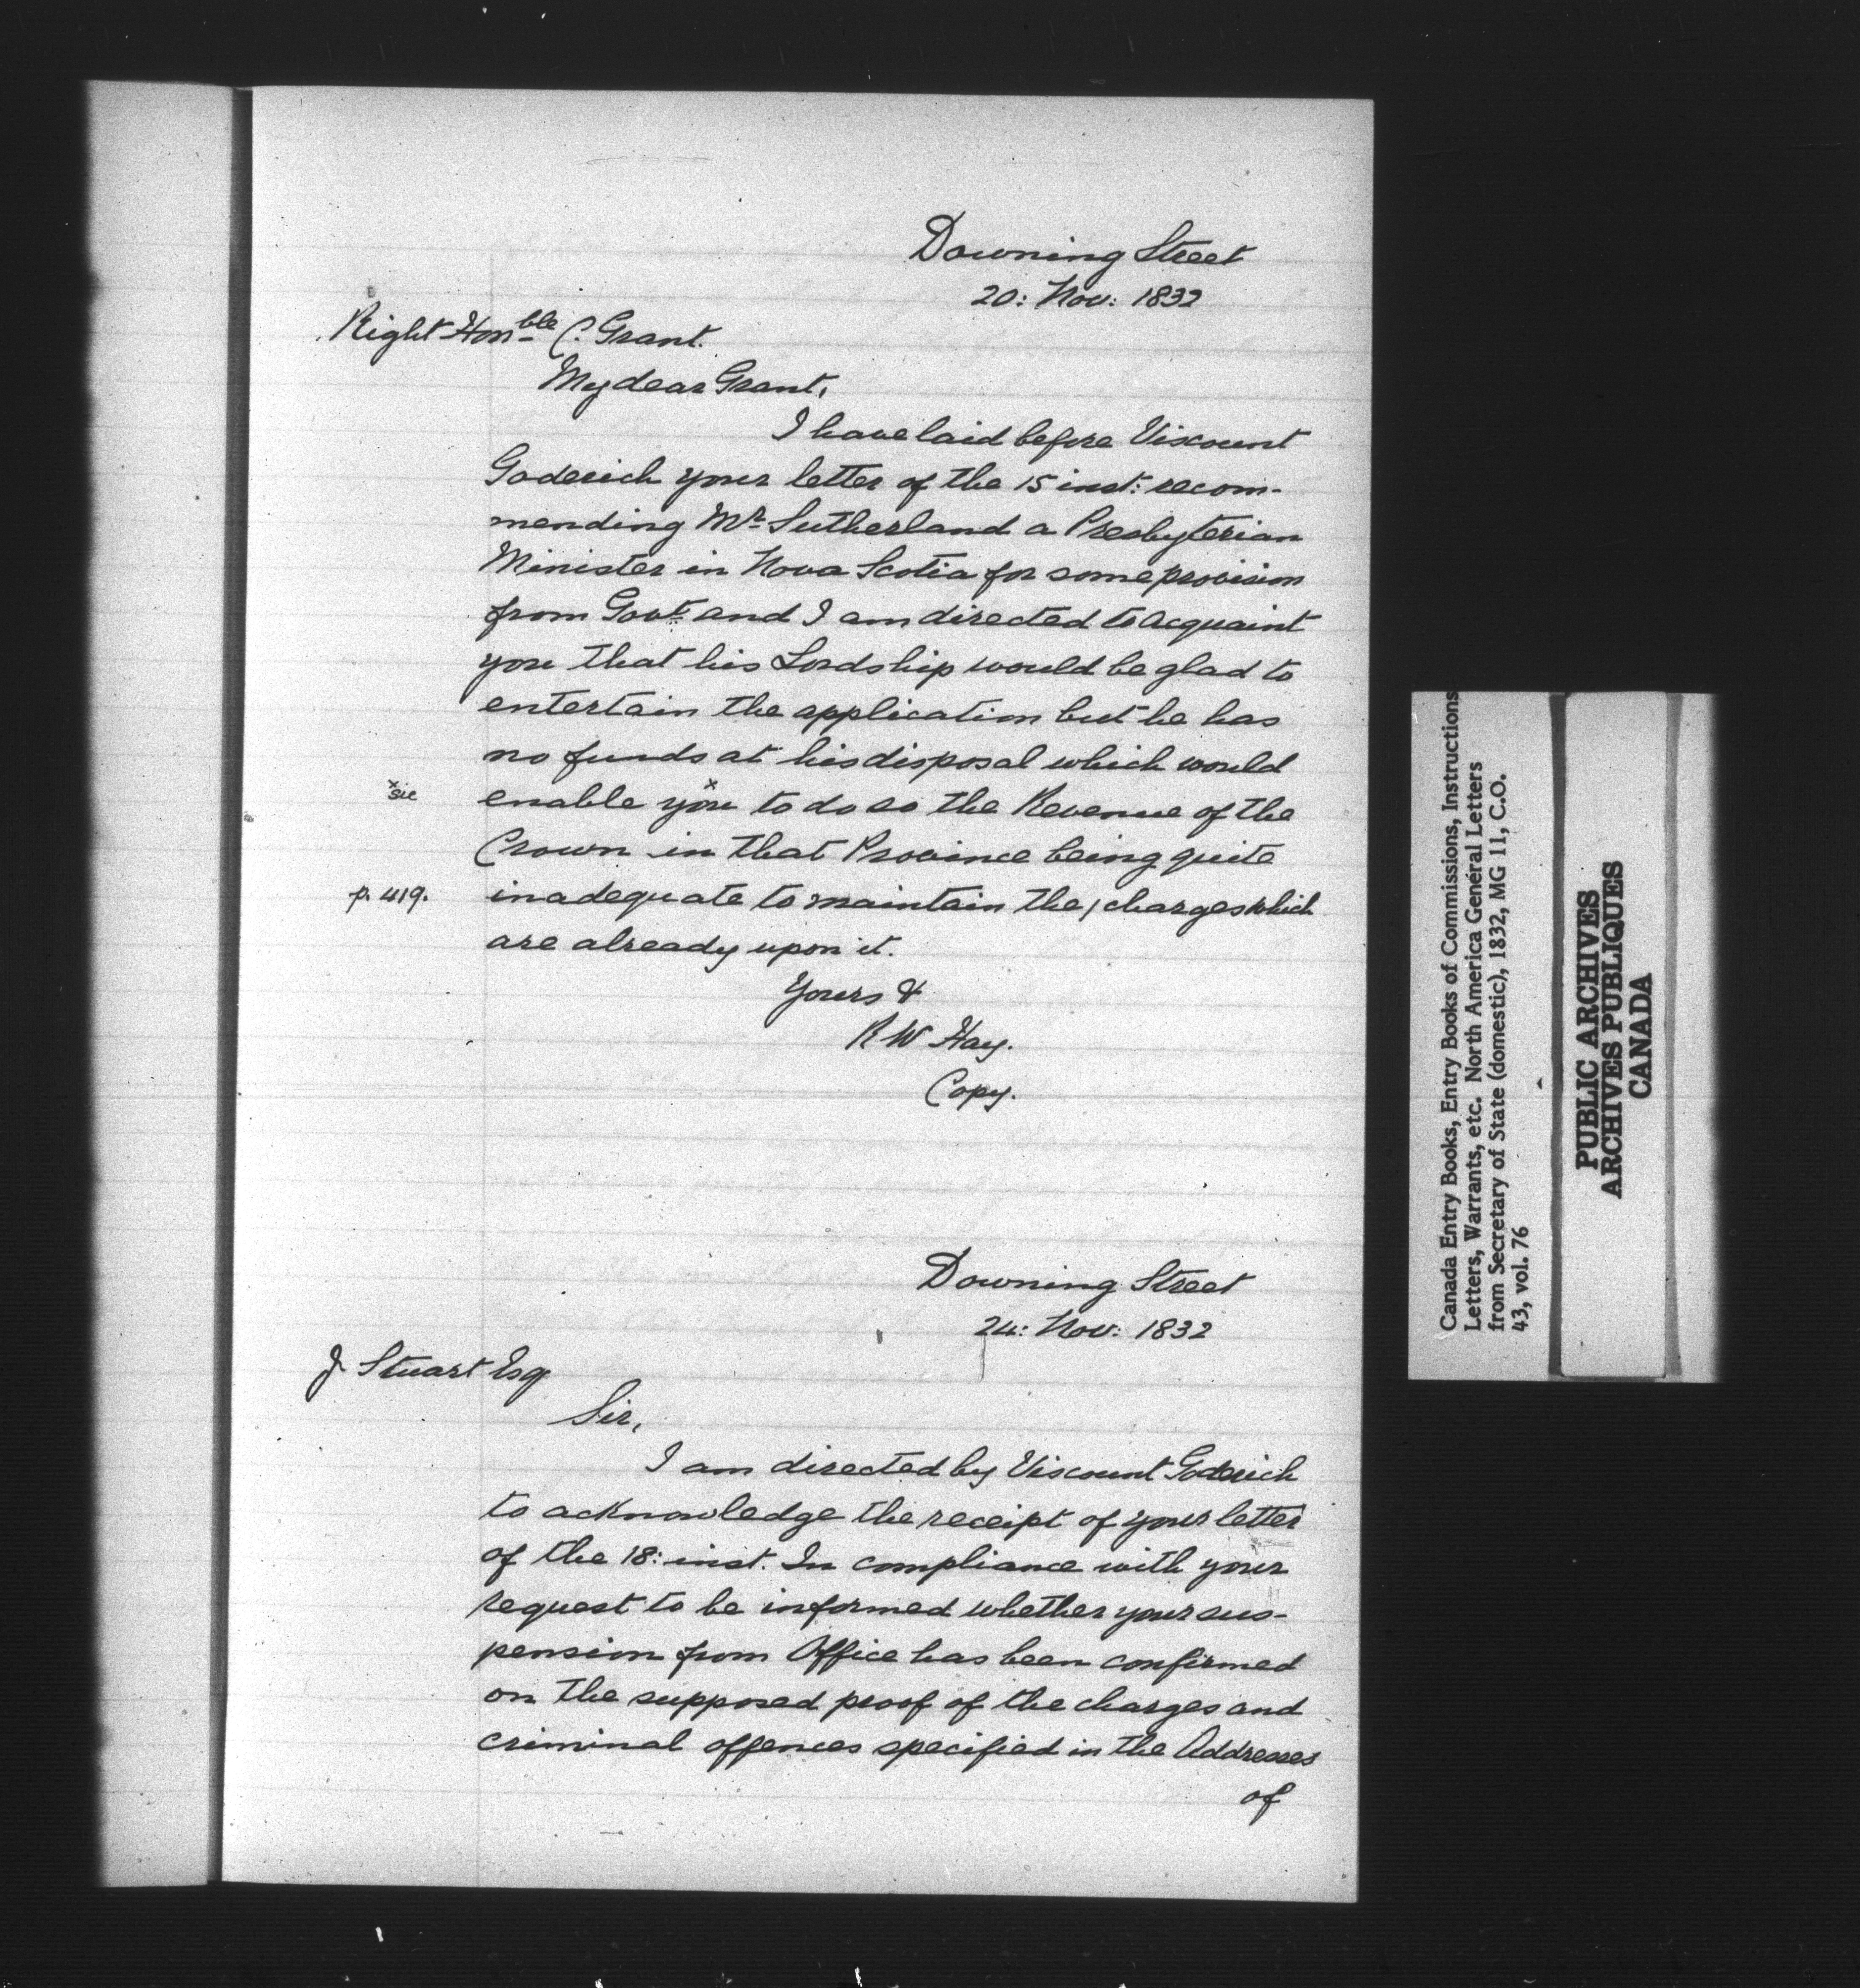 Downing Street
20: Nov: 1832
Right Honble C. Grant.
My dear Grant,
I have laid before Viscount
Goderich your letter of the 15 inst: recom-
mending Mr Sutherland a Presbyterian
Minister in Nova Scotia for some provision
from Govt and I am directed to acquaint
you that his Lordship would be glad to
entertain the application but he has
no funds at his disposal which would
x sic enable you x to do so the Revenue of the
Crown in that Province being quite
p. 419. inadequate to maintain the / charges which
are already upon it.
Yours &
R W Hay.
Copy.
Downing Street
24: Nov: 1832
J. Stuart Esq
Sir,
I am directed by Viscount Goderich
to acknowledge the receipt of your letter
of the 18: inst. In compliance with your
request to be informed whether your sus-
pension from Office has been confirmed
on the supposed proof of the charges and
criminal offences specified in the Addresses
of
Canada Entry Books, Entry Books of Commissions, Instructions
Letters, Warrants, etc. North America General Letters
from Secretary of State (domestic), 1832, MG 11, C.O.
43, vol. 76
PUBLIC ARCHIVES
ARCHIVES PUBLIQUES
CANADA